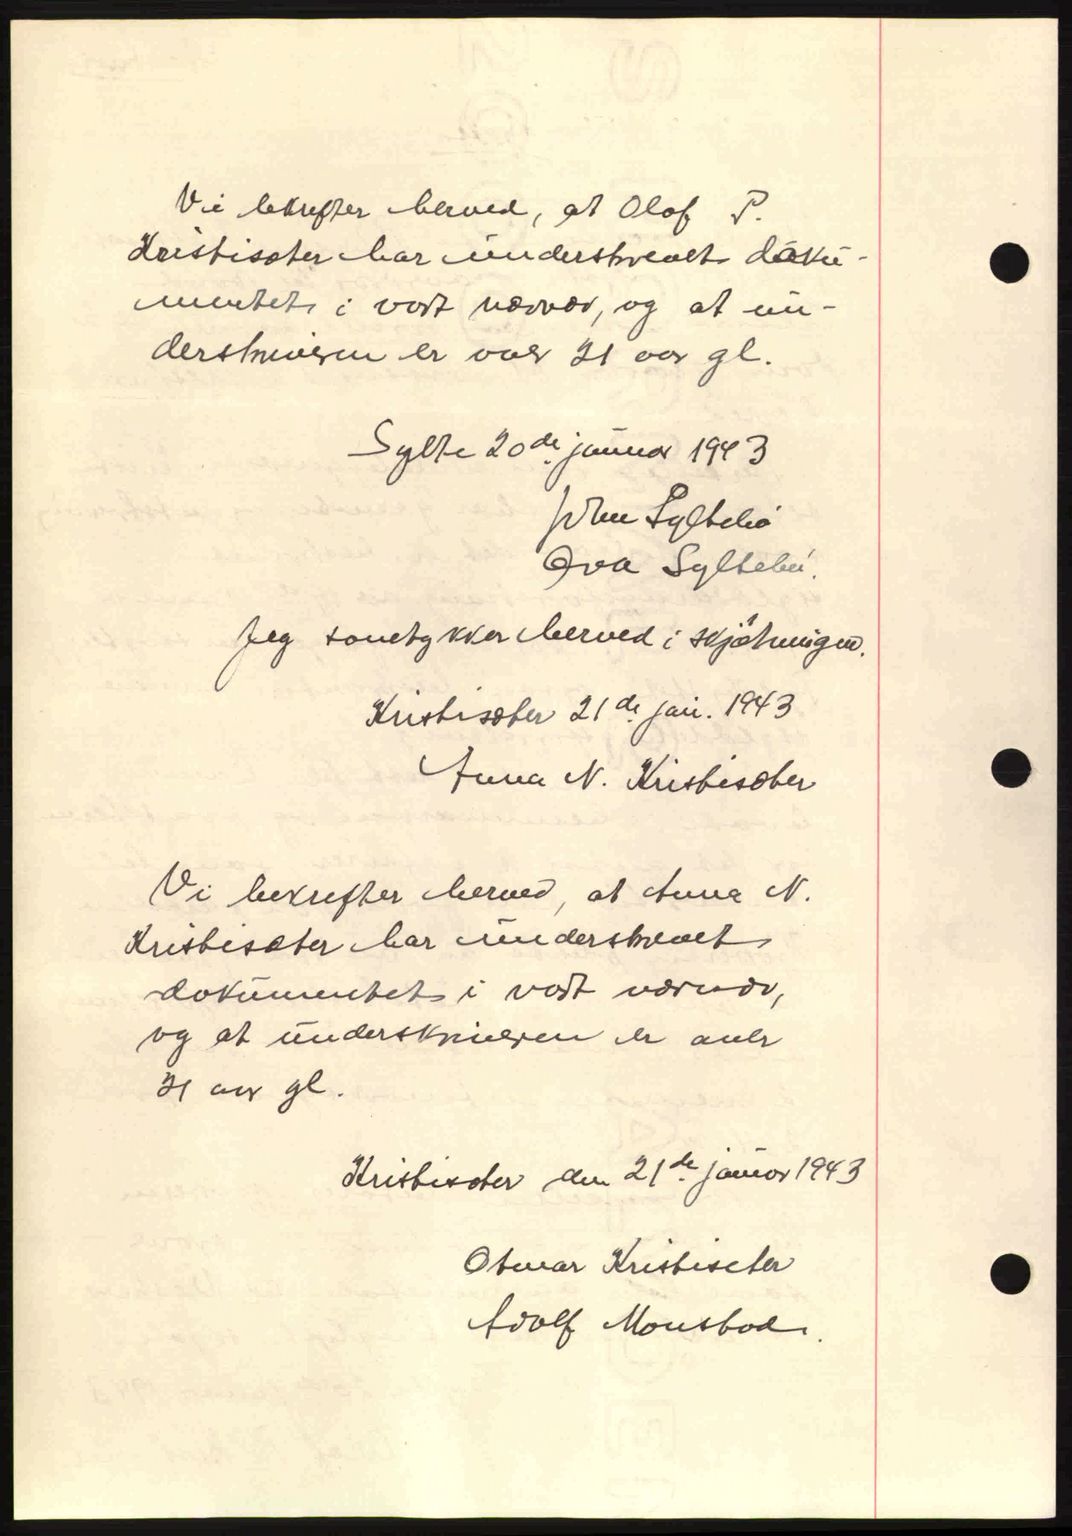 Vi bekrefter herved, at Olof P.
Kristisæter har underskrevet doku-
mentet i vort nærvær, og at un-
derskriveren er over 21 aar gl.
Sylte 20de januar 1943
John Syltebø
Ova Syltebø.
Jeg samtykker herved i skjøtningen.
Kristisæter 21de jan. 1943
Anna N. Kristisæter
Vi bekrefter herved, at Anna N.
Kristisæter har underskrevet
dokumentet i vort nærvær,
og at underskriveren er over
21 aar gl.
Kristisæter den 21de januar 1943
Otmar Kristisæter
Adolf Monsbod